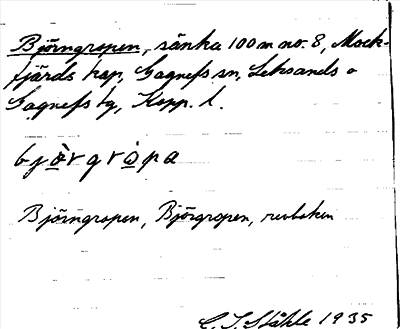 Björngropen, sänka 100 m no. 8, Mock-
fjärds kap, Gagnefs sn, Leksands o
Gagnefs tg, Kopp. l.
bjọ̀rgrọ̀pa
Björngropen, Björgropen, revboken
C. I. Ståhle 1935